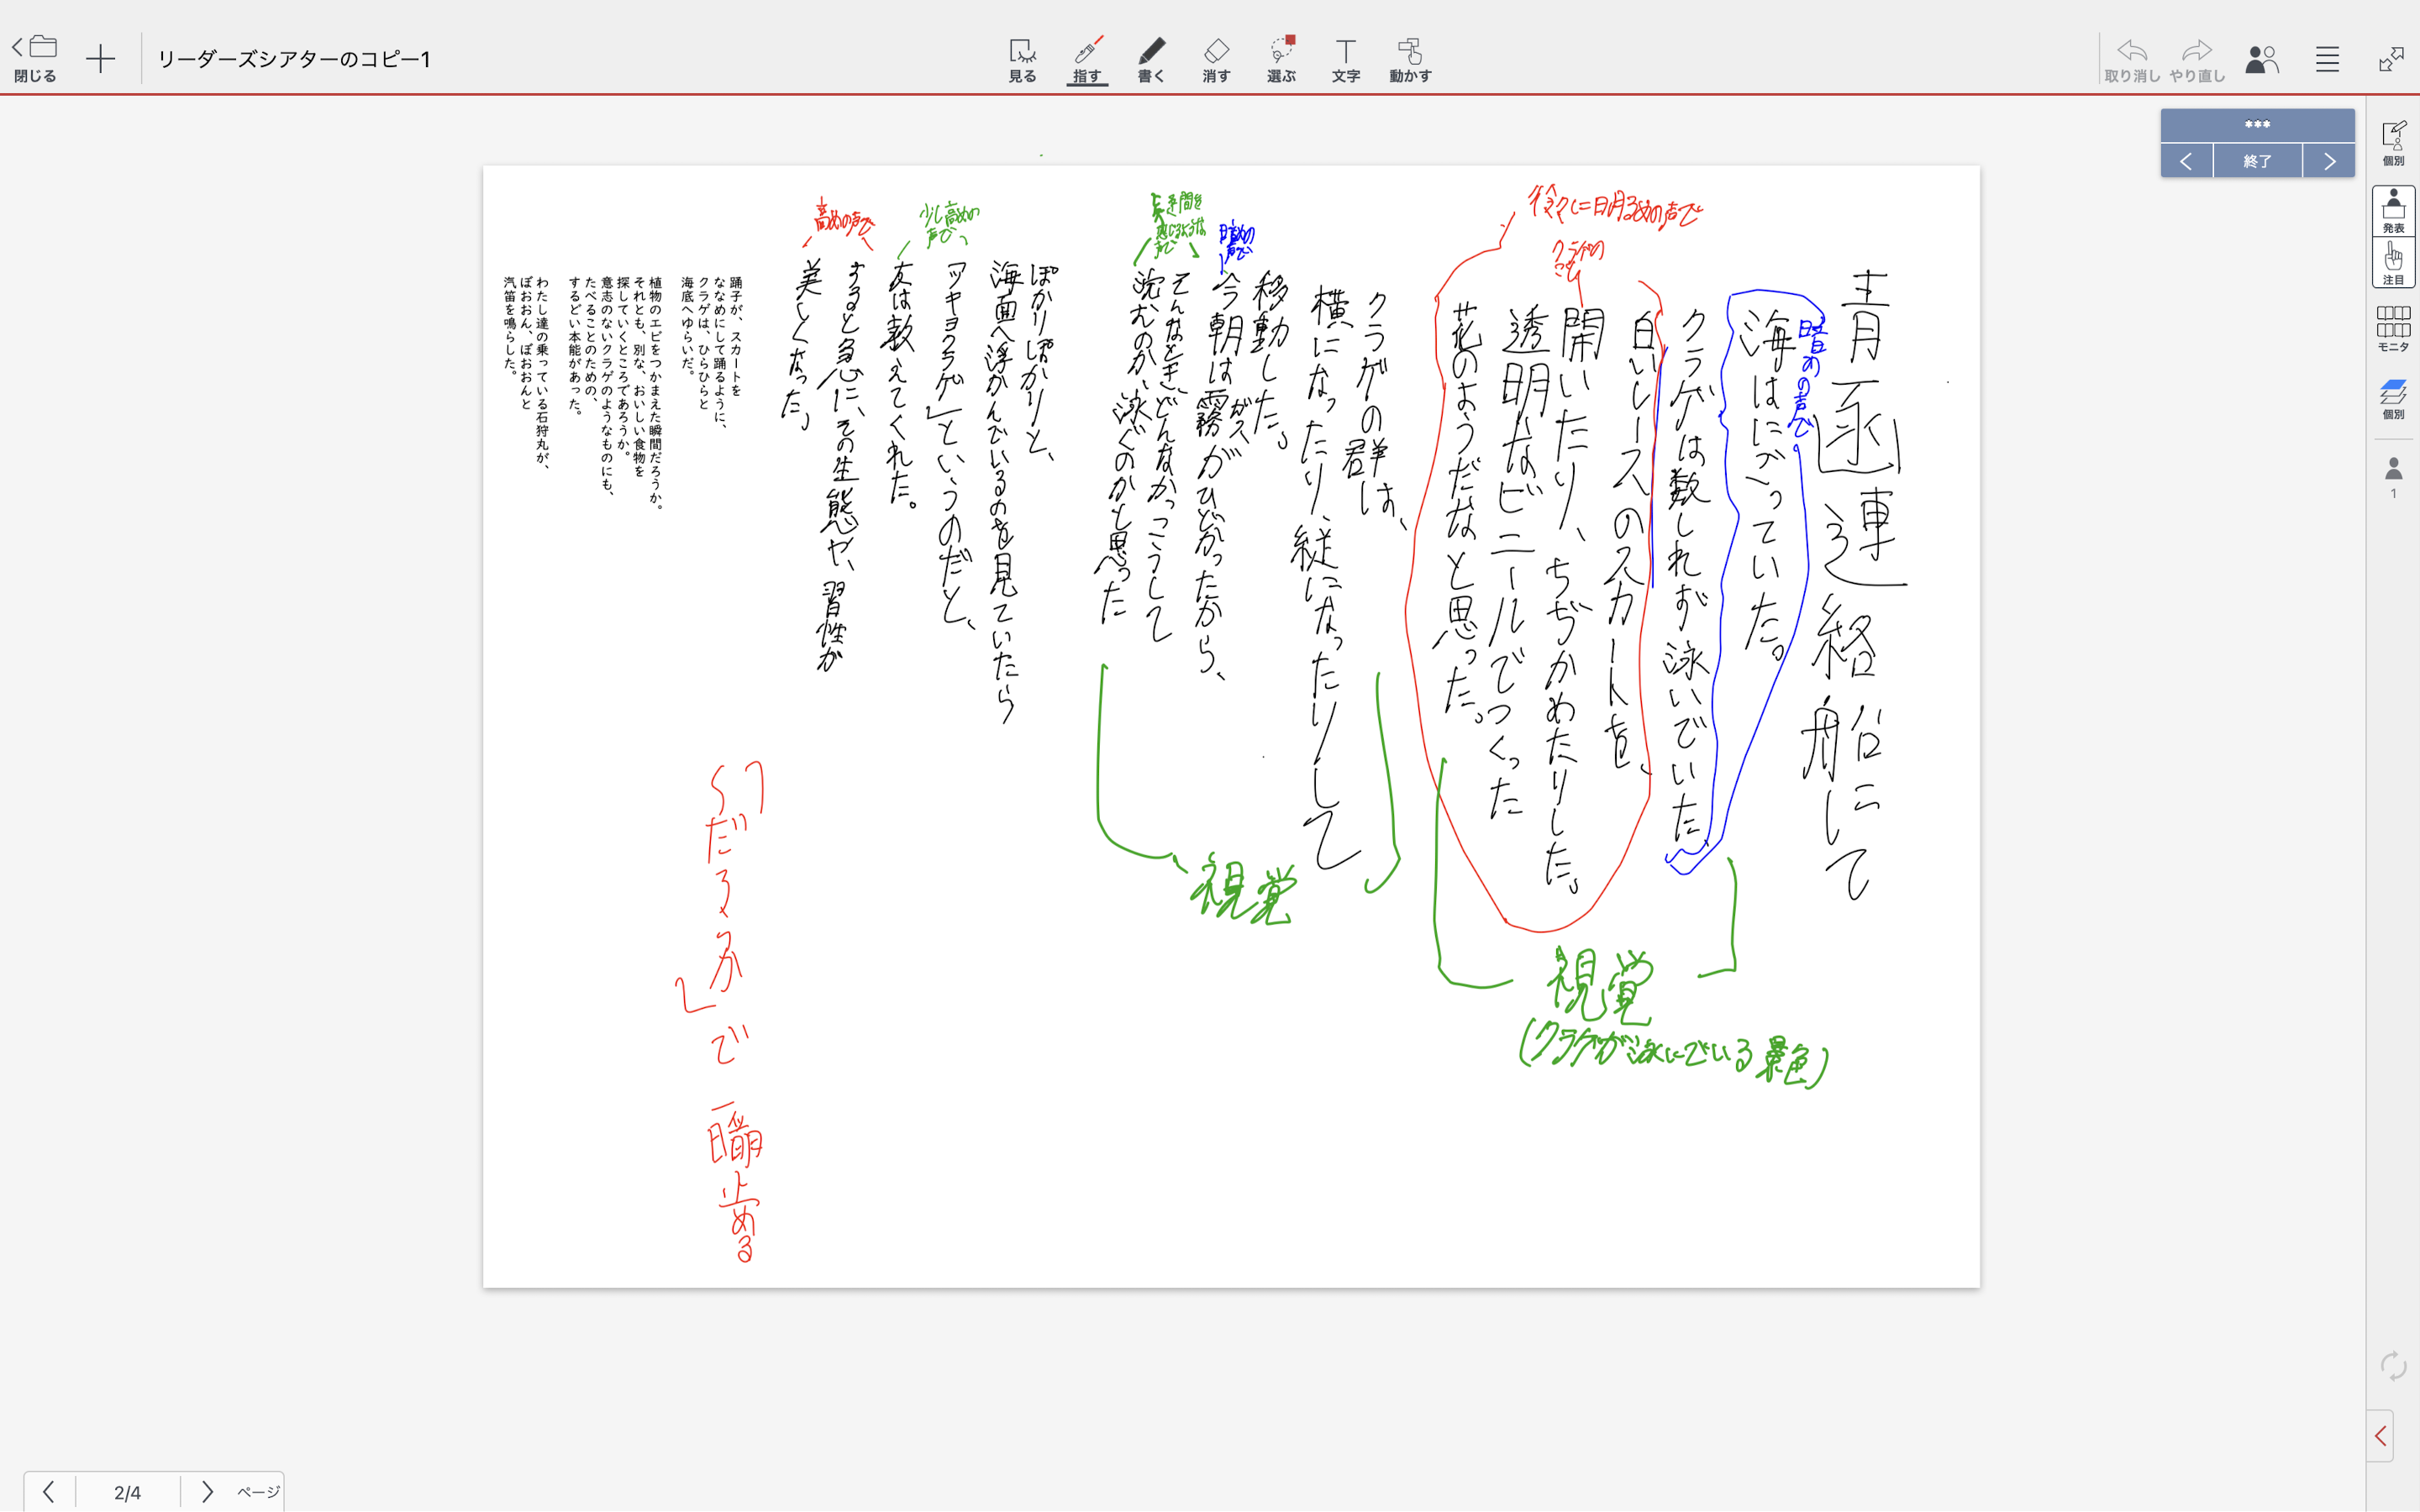 閉じる
リーダーズシアターのコピー1
見る
指す
書く
消す
選ぶ
文字
動かす
取り消し
やり直し
***
終了
個別
発表
注目
モニタ
個別
1
青函連絡船にて
暗めの声で
海はにごっていた。
クラゲは数しれず泳いでいた
徐々に明るめの声で
クラゲのこと
白いレースのスカートを、
開いたり、ちぢかめたりした。
透明なビニールでつくった
花のようだなと思った。
視覚
(クラゲが泳いでいる景色)
クラゲの群は、
横になったり、縦になったりして
移動した。
暗めの声で
今朝は霧がひどかったから、
ガス
間を感じるような声で
そんなときどんなかっこうして
沈むのか、泳ぐのかと思った
視覚
ぽかりぽかりと、
海面へ浮かんでいるのを見ていたら
少し高めの声で
アッキョクラゲ」というのだと、
友は教えてくれた。
高めの声で
すると急に、その生態や、習性が
美しくなった。
踊子が、スカートを
ななめにして踊るように、
クラゲは、ひらひらと
海底へゆらいだ。
植物のエビをつかまえた瞬間だろうか。
それとも、別な、おいしい食物を
探していくところであろうか。
意志のないクラゲのようなものにも、
たべることのための、
するどい本能があった。
わたし達の乗っている石狩丸が、
ぼおおん、ぼおおんと
汽笛を鳴らした。
「〜だろうか」で一瞬止める
2/4
ページ